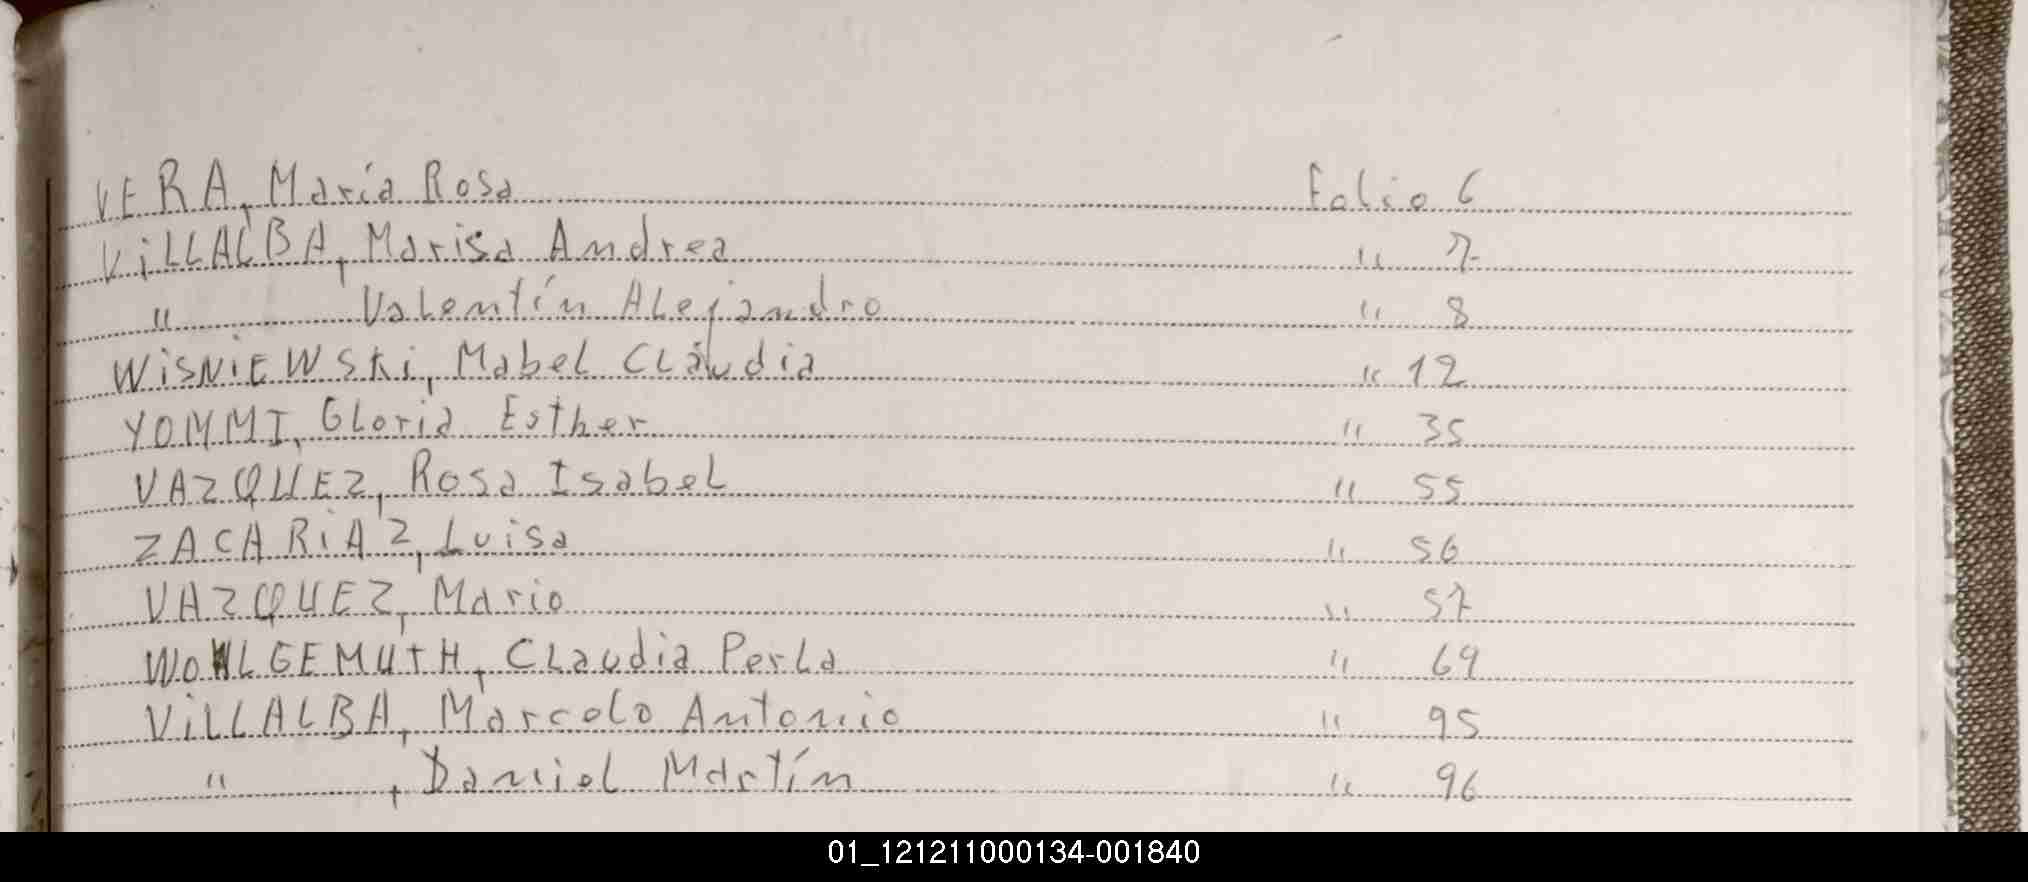 VERA, María Rosa Folio 6
ViLLALBA, Marisa Andrea " 7
" Valentín ALejandro " 8
WiSNiEWSki, MabeL CLáudia " 12
YOMMI, GLoria Esther " 35
VAZQUEZ, Rosa IsabeL " 55
ZACARiAZ, Luisa " 56
VAZQUEZ, Mario " 57
WOHLGEMUTH, CLaudia PerLa " 69
ViLLALBA, Marcelo Antonio " 95
" , Daniel Martín " 96
01_121211000134-001840